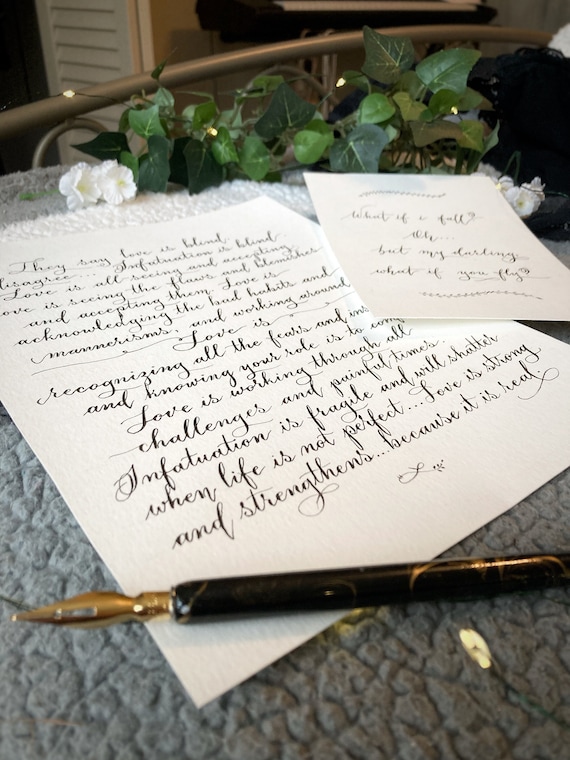 They say love is blind
disagree... Infatuation is blind
Love is all seeing and accepting.
Love is seeing the flaws and blemishes
and accepting them. Love is
acknowledging the bad habits and
mannerisms and working around
Love is
recognizing all the fears and
and knowing your role is to
Love is working through all
challenges and painful times.
Infatuation is fragile and will shatter
when life is not perfect... Love is strong
and strengthens... because it is real.
What if i fall?
Oh...
but my darling
what if you fly?